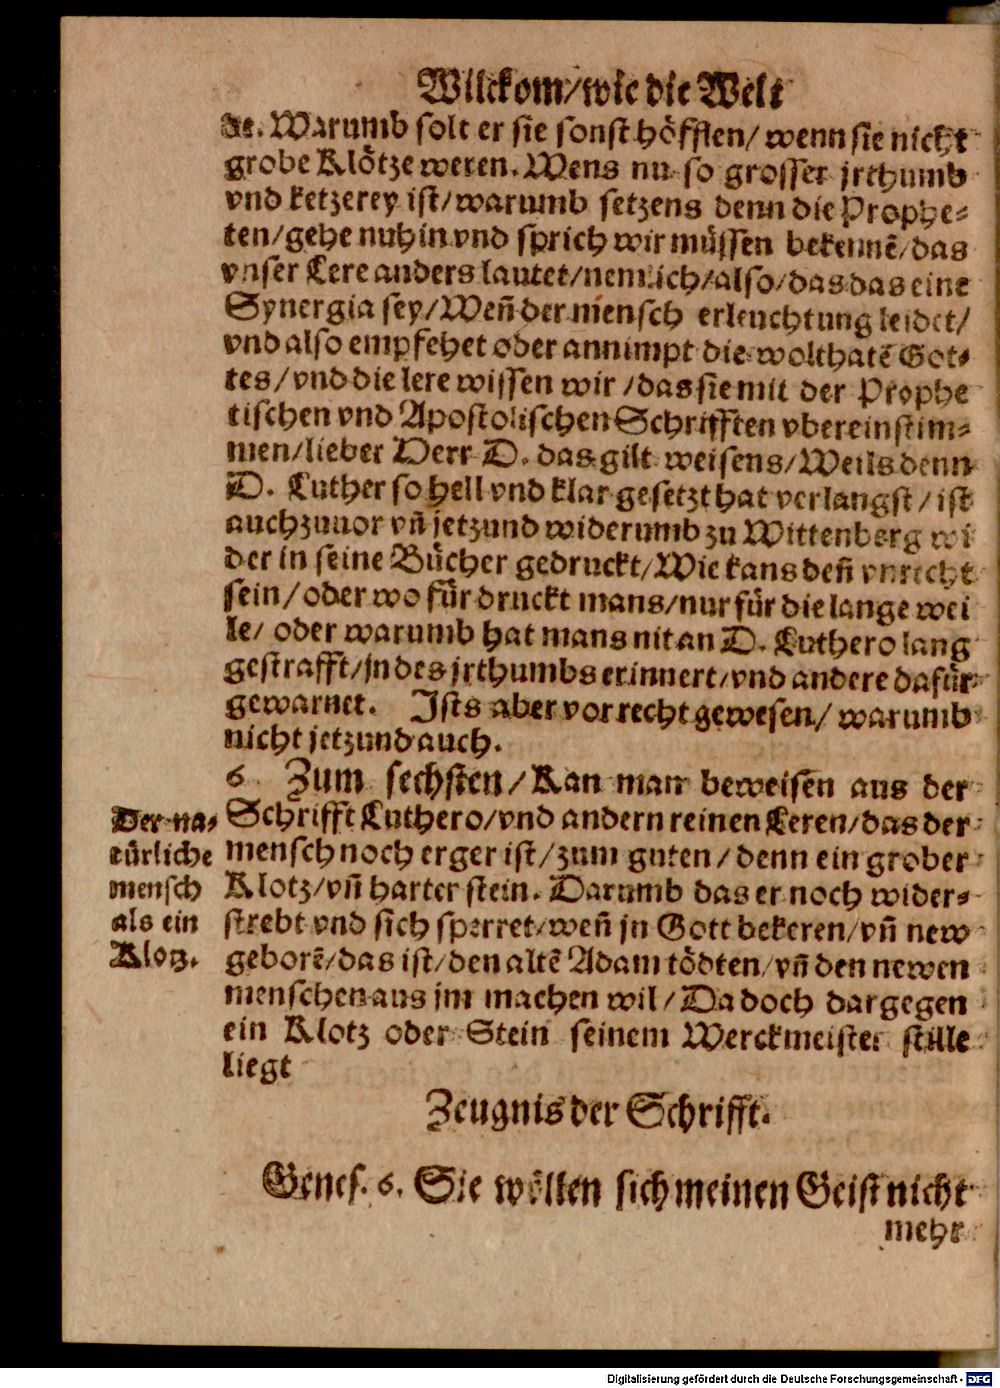 Wilckom/wie die Welt
de. Warumb solt er sie sonst höfflen/ wenn sie nicht
grobe Klötze weren. Wens nu so grosser jrthumb
vnd ketzerey ist/warumb setzens denn die Prophe-
ten/gehe nu hin vnd sprich wir müssen bekennẽ/das
vnser Lere anders lautet/nemlich/also/das das eine
Synergia sey/Weñ der mensch erleuchtung leidet/
vnd also empfehet oder annimpt die wolthatẽ Got-
tes/vnd die lere wissen wir/das sie mit der Prophe
tischen vnd Apostolischen Schrifften vbereinstim-
men/lieber Herr D. das gilt weisens/Weils denn
D. Luther so hell vnd klar gesetzt hat verlangst/ist
auch zuuor vñ jetzund widerumb zu Wittenberg wi
der in seine Bücher gedruckt/Wie kans deñ vnrecht
sein/oder wo für druckt mans/nur für die lange wei
le/ oder warumb hat mans nit an D. Luthero lang
gestrafft/jn des jrthumbs erinnert/vnd andere dafür
gewarnet. Ists aber vor recht gewesen/ warumb
nicht jetzund auch.
6 Zum sechsten/Kan man beweisen aus der
Schrifft Luthero/vnd andern reinen Leren/das der
mensch noch erger ist/zum guten/denn ein grober
Klotz/vñ harter stein. Darumb das er noch wider-
strebt vnd sich sperret/weñ jn Gott bekeren/vñ new
geborẽ/das ist/den altẽ Adam tödten/vñ den newen
menschen aus jm machen wil/Da doch dargegen
ein Klotz oder Stein seinem Werckmeister stille
liegt
Der na-
türliche
mensch
als ein
Klotz.
Zeugnis der Schrifft.
Genes. 6. Sie wöllen sich meinen Geist nicht
mehr
Digitalisierung gefördert durch die Deutsche Forschungsgemeinschaft - DFG